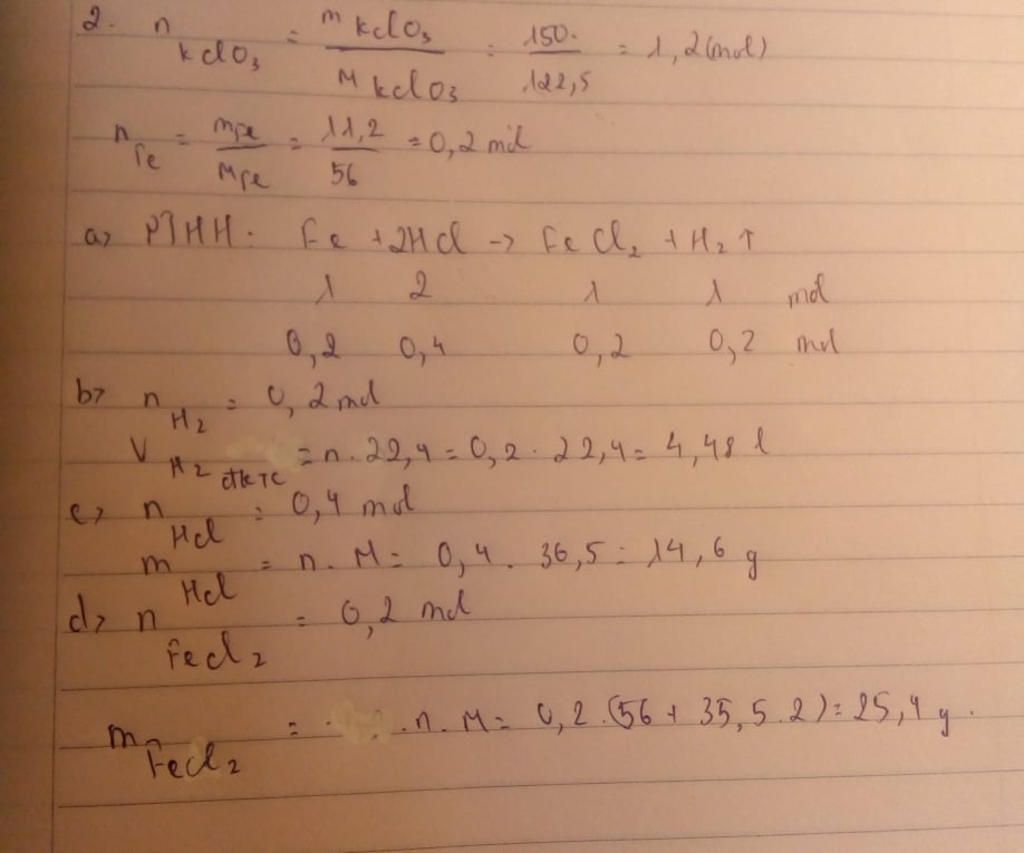 2. n KClO₃ = m KClO₃ / M KClO₃ = 150. / 122,5 = 1,2 (mol)
n Fe = mFe / MFe = 11,2 / 56 = 0,2 mol
a> PTHH: Fe + 2HCl -> FeCl₂ + H₂ ↑
1 2 1 1 mol
0,2 0,4 0,2 0,2 mol
b> n H₂ = 0,2 mol
V H₂ đktc = n . 22,4 = 0,2 . 22,4 = 4,48 l
c> n HCl = 0,4 mol
m HCl = n . M = 0,4 . 36,5 = 14,6 g
d> n FeCl₂ = 0,2 mol
m FeCl₂ = n . M = 0,2 . (56 + 35,5 . 2) = 25,4 g .